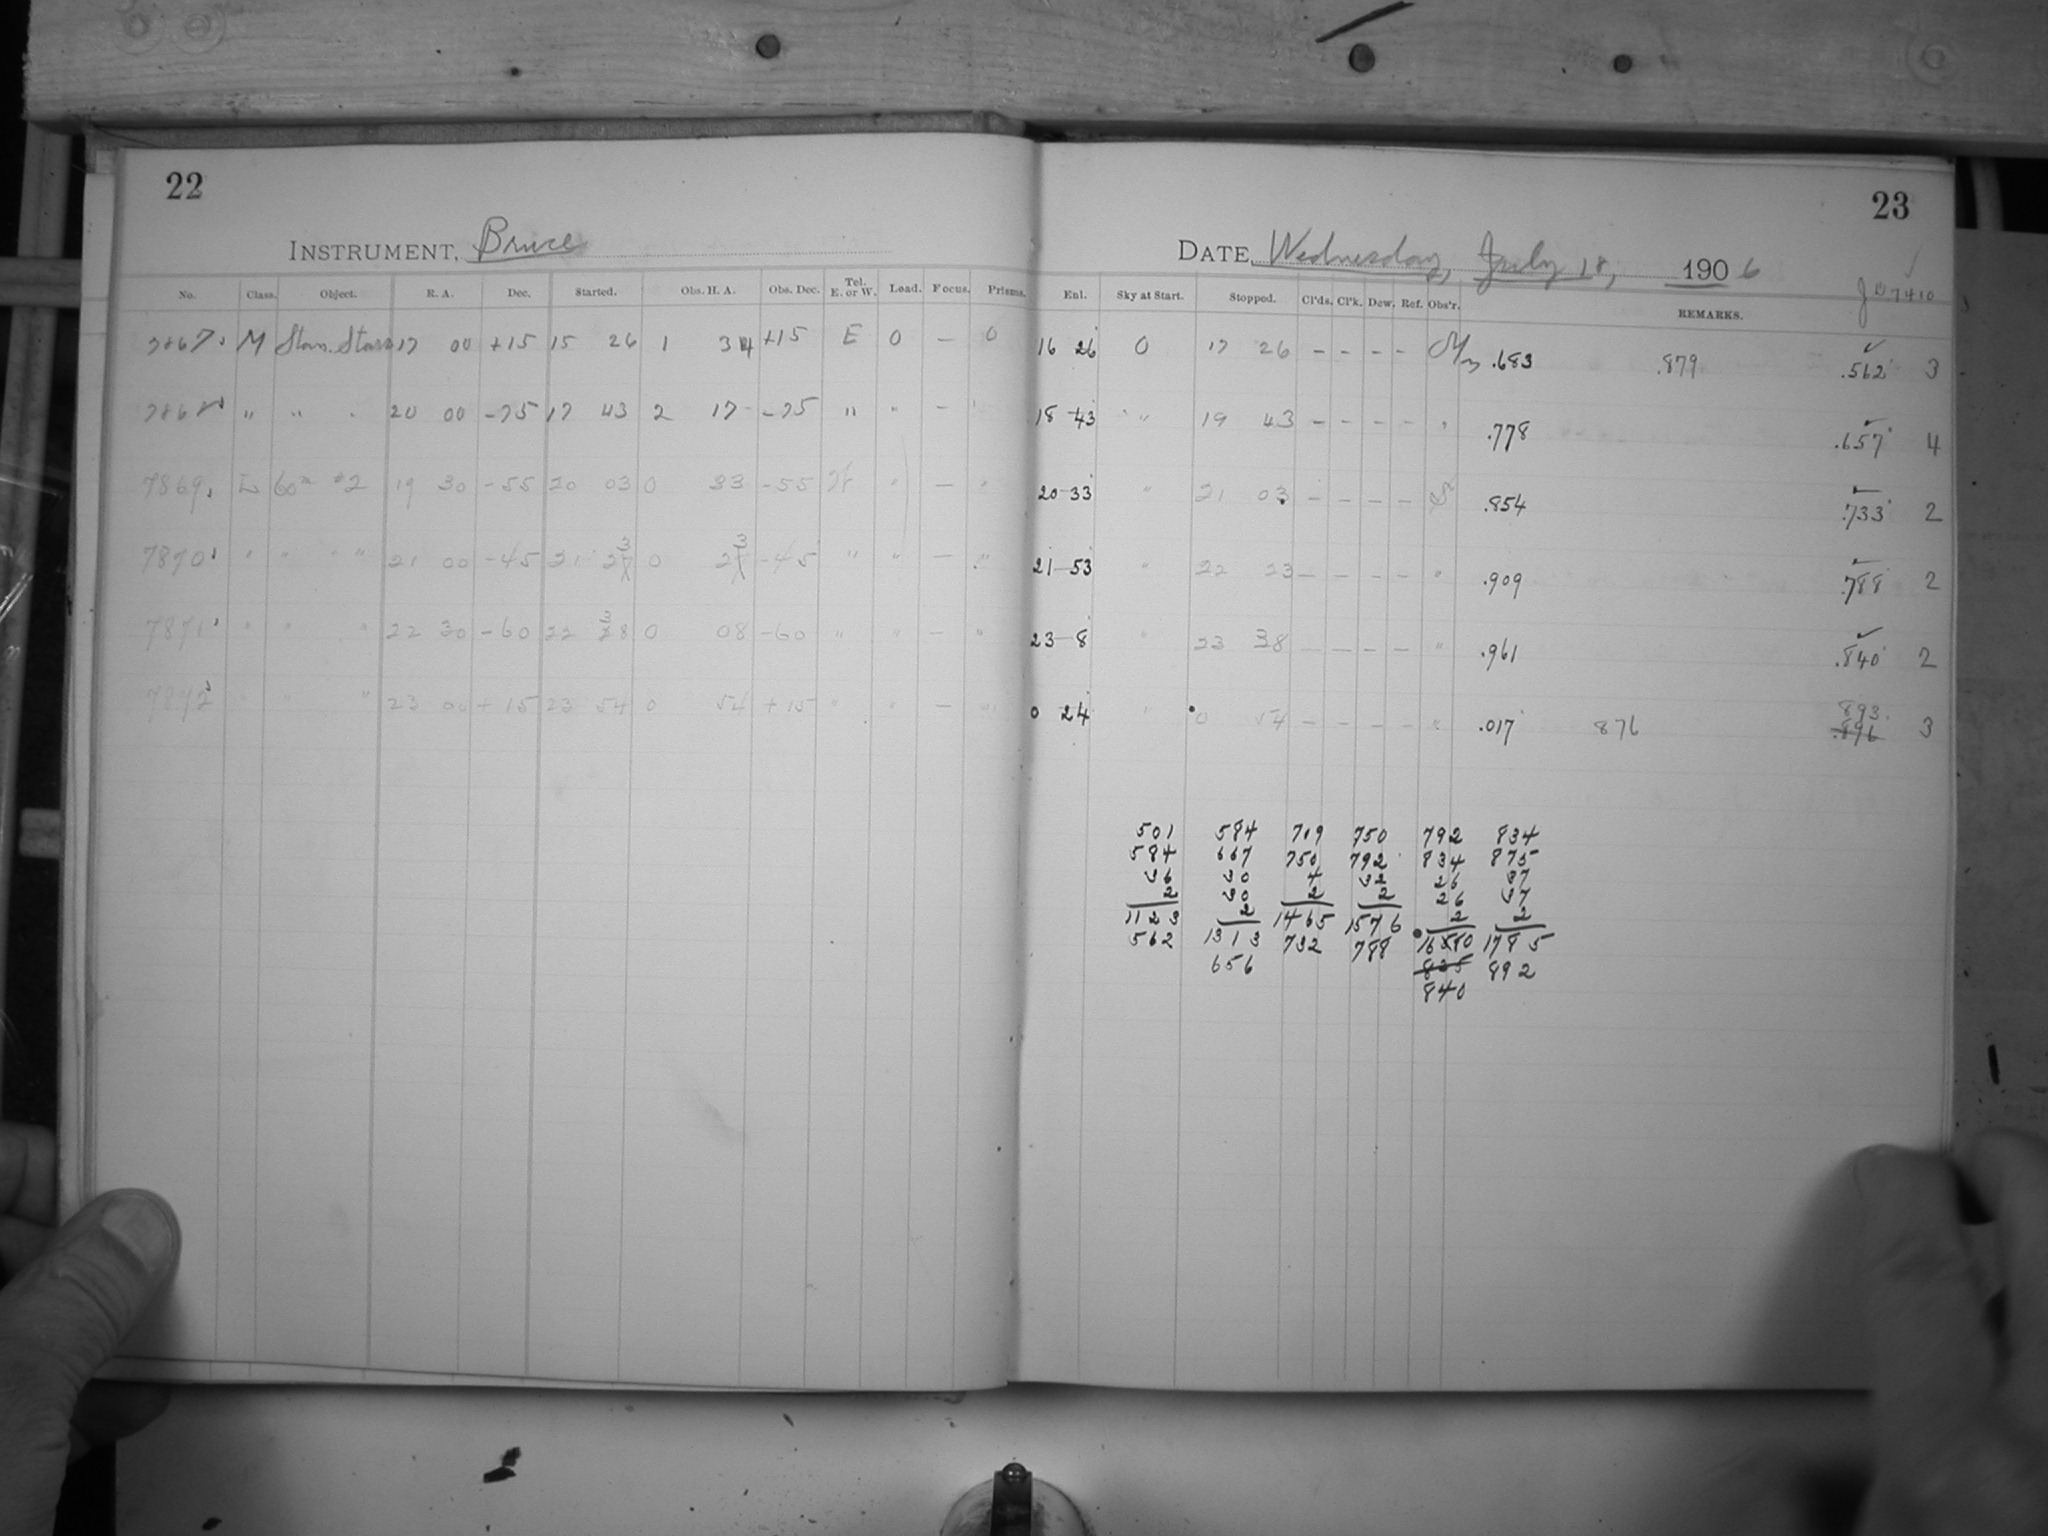 22
23
INSTRUMENT, Bruce
DATE, Wednesday, July 18, 1906
No. Class. Object. R. A. Dec. Started. Obs. H. A. Obs. Dec. Tel. E. or W. Load. Focus. Prisms. Enl. Sky at Start. Stopped. Cl'ds. Cl'k. Dew. Ref. Obs'r. REMARKS. 7410
7867 M Stars 17 00 +15 15 26 1 34 +15 E 0 — 0 16 26 0 17 26 – – – – .683 .879 .562 3
7868 " " 20 00 -75 17 43 2 17 -75 " " – 18-43 " 19 43 – – – – .778 .657 4
7869 L 60m #2 19 30 -55 20 03 0 33 -55 W " — " 20-33 " 21 03 – – – – .854 .733 2
7870 " " " 21 00 -45 21 23 0 23 -45 " " — " 21-53 " 22 23 – – – – " .909 .788 2
7871 " " " 22 30 -60 22 38 0 08 -60 " " – " 23-8 " 23 38 – – – – " .961 .840 2
7872 " " " 23 00 +15 23 54 0 54 +15 " " — " 0 24 " 0 54 – – – – " .017 876 893 3
.896
501 584 719 750 792 834
584 667 750 792 834 875
36 30 4 32 26 37
2 30 2 2 26 37
1123 2 1465 1576 2 2
562 1313 732 788 1680 1785
656 835 892
840